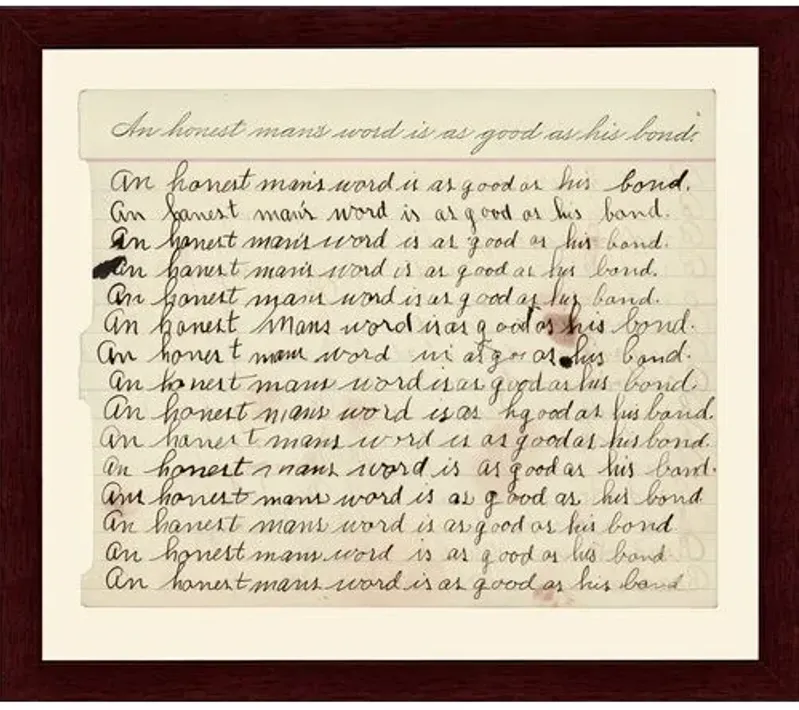 An honest mans word is as good as his bond.
An honest man's word is as good as his bond.
An honest man's word is as good as his bond.
An honest man's word is as good as his bond.
An honest man's word is as good as his bond.
An honest mans word is as good as his bond.
An honest Mans word is as good as his bond.
An honest mans word as his bond.
An honest mans word is as good as his bond.
An honest mans word is as hgood as his bond.
An honest mans word is as good as his bond.
An honest mans word is as good as his bond.
An honest mans word is as good as his bond
An honest mans word is as good as his bond
An honest mans word is as good as his bond
An honest mans word is as good as his bond